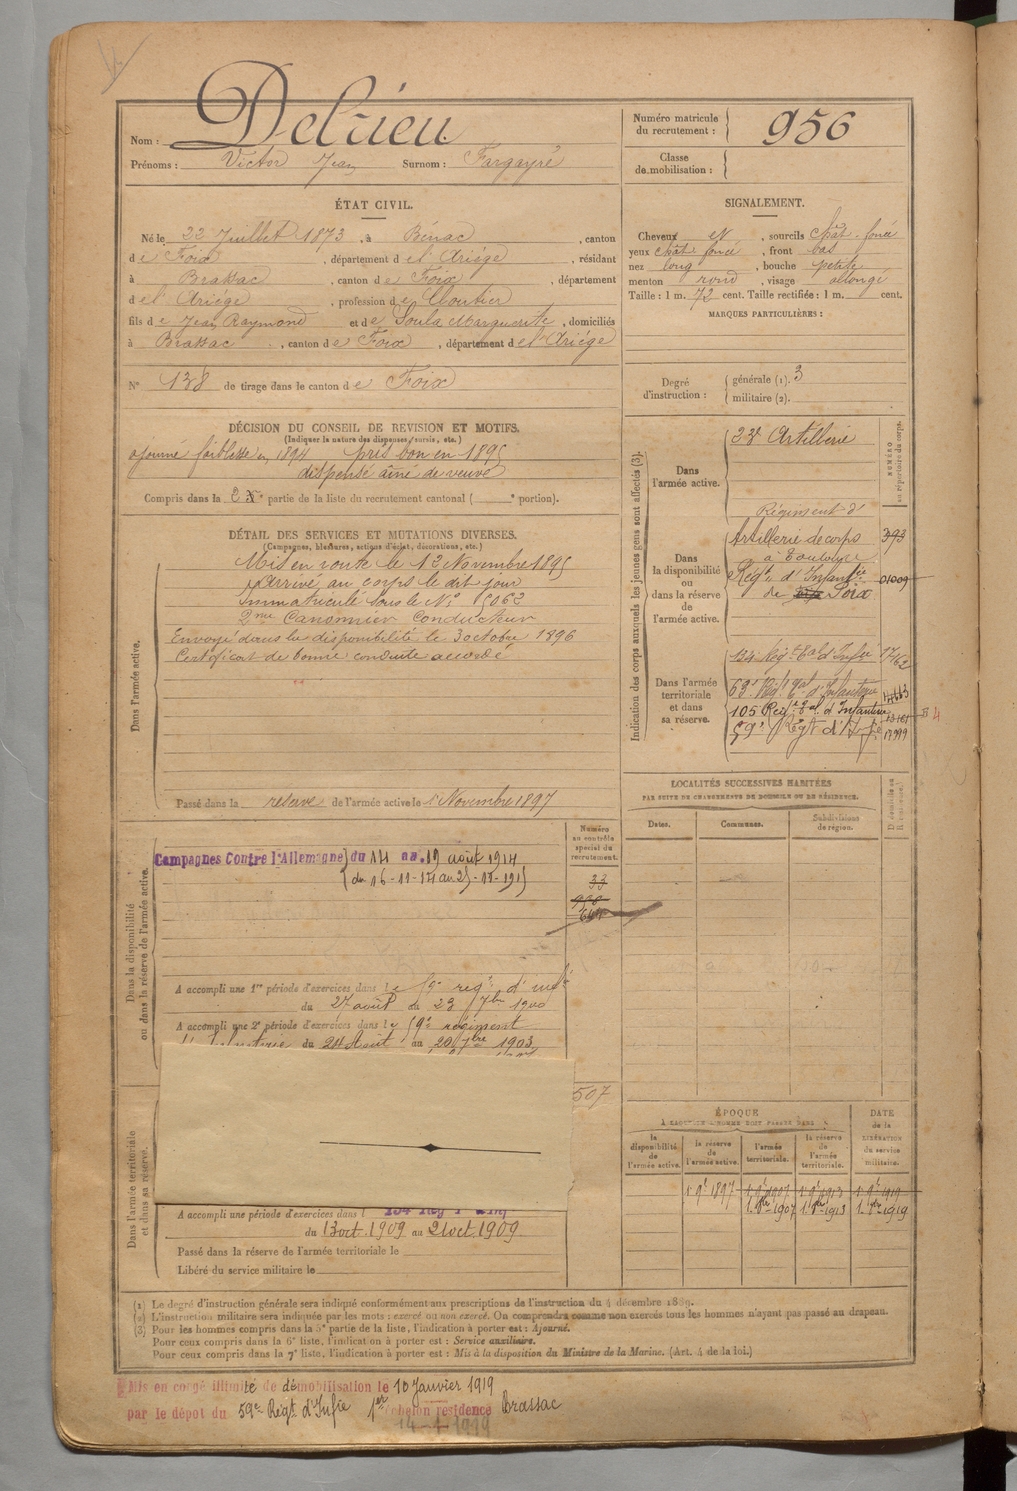 Nom : Delrieu
Prénoms : Victor Jean Surnom : Fargayré
Numéro matricule du recrutement : 956
Classe de mobilisation :
ÉTAT CIVIL.
Né le 22 Juillet 1873, à Bénac, canton
de Foix, département de l'Ariège, résidant
à Brassac, canton de Foix, département
de l'Ariège, profession de
fils de Jean Raymond et de Soula Marguerite, domiciliés
à Brassac, canton de Foix, département de l'Ariège
N° 138 de tirage dans le canton de Foix
SIGNALEMENT.
Cheveux et, sourcils chât. foncé
yeux chât. foncé, front bas
nez long, bouche petite
menton rond, visage allongé
Taille : 1 m. 72 cent. Taille rectifiée : 1 m. cent.
MARQUES PARTICULIÈRES :
Degré d'instruction : générale (1). 3
militaire (2).
DÉCISION DU CONSEIL DE REVISION ET MOTIFS.
(Indiquer la nature des dispenses, sursis, etc.)
ajourné faiblesse en 1894 pris bon en 1895
dispensé aîné de veuve
Compris dans la 2e partie de la liste du recrutement cantonal ( e portion).
DÉTAIL DES SERVICES ET MUTATIONS DIVERSES.
(Campagnes, blessures, actions d'éclat, décorations, etc.)
Dans l'armée active.
Mis en route le 12 Novembre 1895
Arrivé au corps le dit jour
Immatriculé sous le N° 5062
2me Canonnier Conducteur
Envoyé dans la disponibilité le 3 octobre 1896
Certificat de bonne conduite accordé
Passé dans la réserve de l'armée active le 1 Novembre 1897
Indication des corps auxquels les jeunes gens sont affectés (3).
NUMÉRO au répertoire du corps.
Dans l'armée active.
23e Artillerie
Dans la disponibilité ou dans la réserve de l'armée active.
Régiment d'
Artillerie de corps 393
à Toulouse
Régt d'Infantie 01009
de Foix
Dans l'armée territoriale et dans sa réserve.
134 Régt Eal d'Infie 1762
63e Régt Eal d'Infanterie
105 Régt Eal d'Infanterie
59e Régt d'Infie
LOCALITÉS SUCCESSIVES HABITÉES
PAR SUITE DE CHANGEMENTS DE DOMICILE OU DE RÉSIDENCE.
Dates. Communes. Subdivisions de région.
Dans la disponibilité ou dans la réserve de l'armée active.
Numéro au contrôle spécial du recrutement.
Campagnes Contre l'Allemagne du 14 au 19 août 1914
33
A accompli une 1re période d'exercices dans le 59e régt d'infie
du 27 août au 23 7bre 1900
A accompli une 2e période d'exercices dans le 59e régiment
d'Infanterie du 24 Août au 20 7bre 1903
507
Dans l'armée territoriale et dans sa réserve.
A accompli une période d'exercices dans l 134 Reg T Inf
du 13 oct. 1909 au 21 oct. 1909
Passé dans la réserve de l'armée territoriale le
Libéré du service militaire le
ÉPOQUE
À LAQUELLE L'HOMME DOIT PASSER DANS
la disponibilité de l'armée active.
la réserve de l'armée active.
l'armée territoriale.
la réserve de l'armée territoriale.
DATE de la LIBÉRATION du service militaire.
1 9e 1897 1 9e 1907 1 9e 1913 1 9e 1919
1. 9bre 1907 1. 9bre 1913 1. 9bre 1919
(1) Le degré d'instruction générale sera indiqué conformément aux prescriptions de l'instruction du 4 décembre 1889.
(2) L'instruction militaire sera indiquée par les mots : exercé ou non exercé. On comprendra comme non exercés tous les hommes n'ayant pas passé au drapeau.
(3) Pour les hommes compris dans la 5e partie de la liste, l'indication à porter est : Ajourné.
Pour ceux compris dans la 6e liste, l'indication à porter est : Service auxiliaire.
Pour ceux compris dans la 7e liste, l'indication à porter est : Mis à la disposition du Ministre de la Marine. (Art. 4 de la loi.)
Mis en congé illimité de démobilisation le 10 Janvier 1919
par le dépôt du 59e Régt d'Infie 1er échelon résidence Brassac